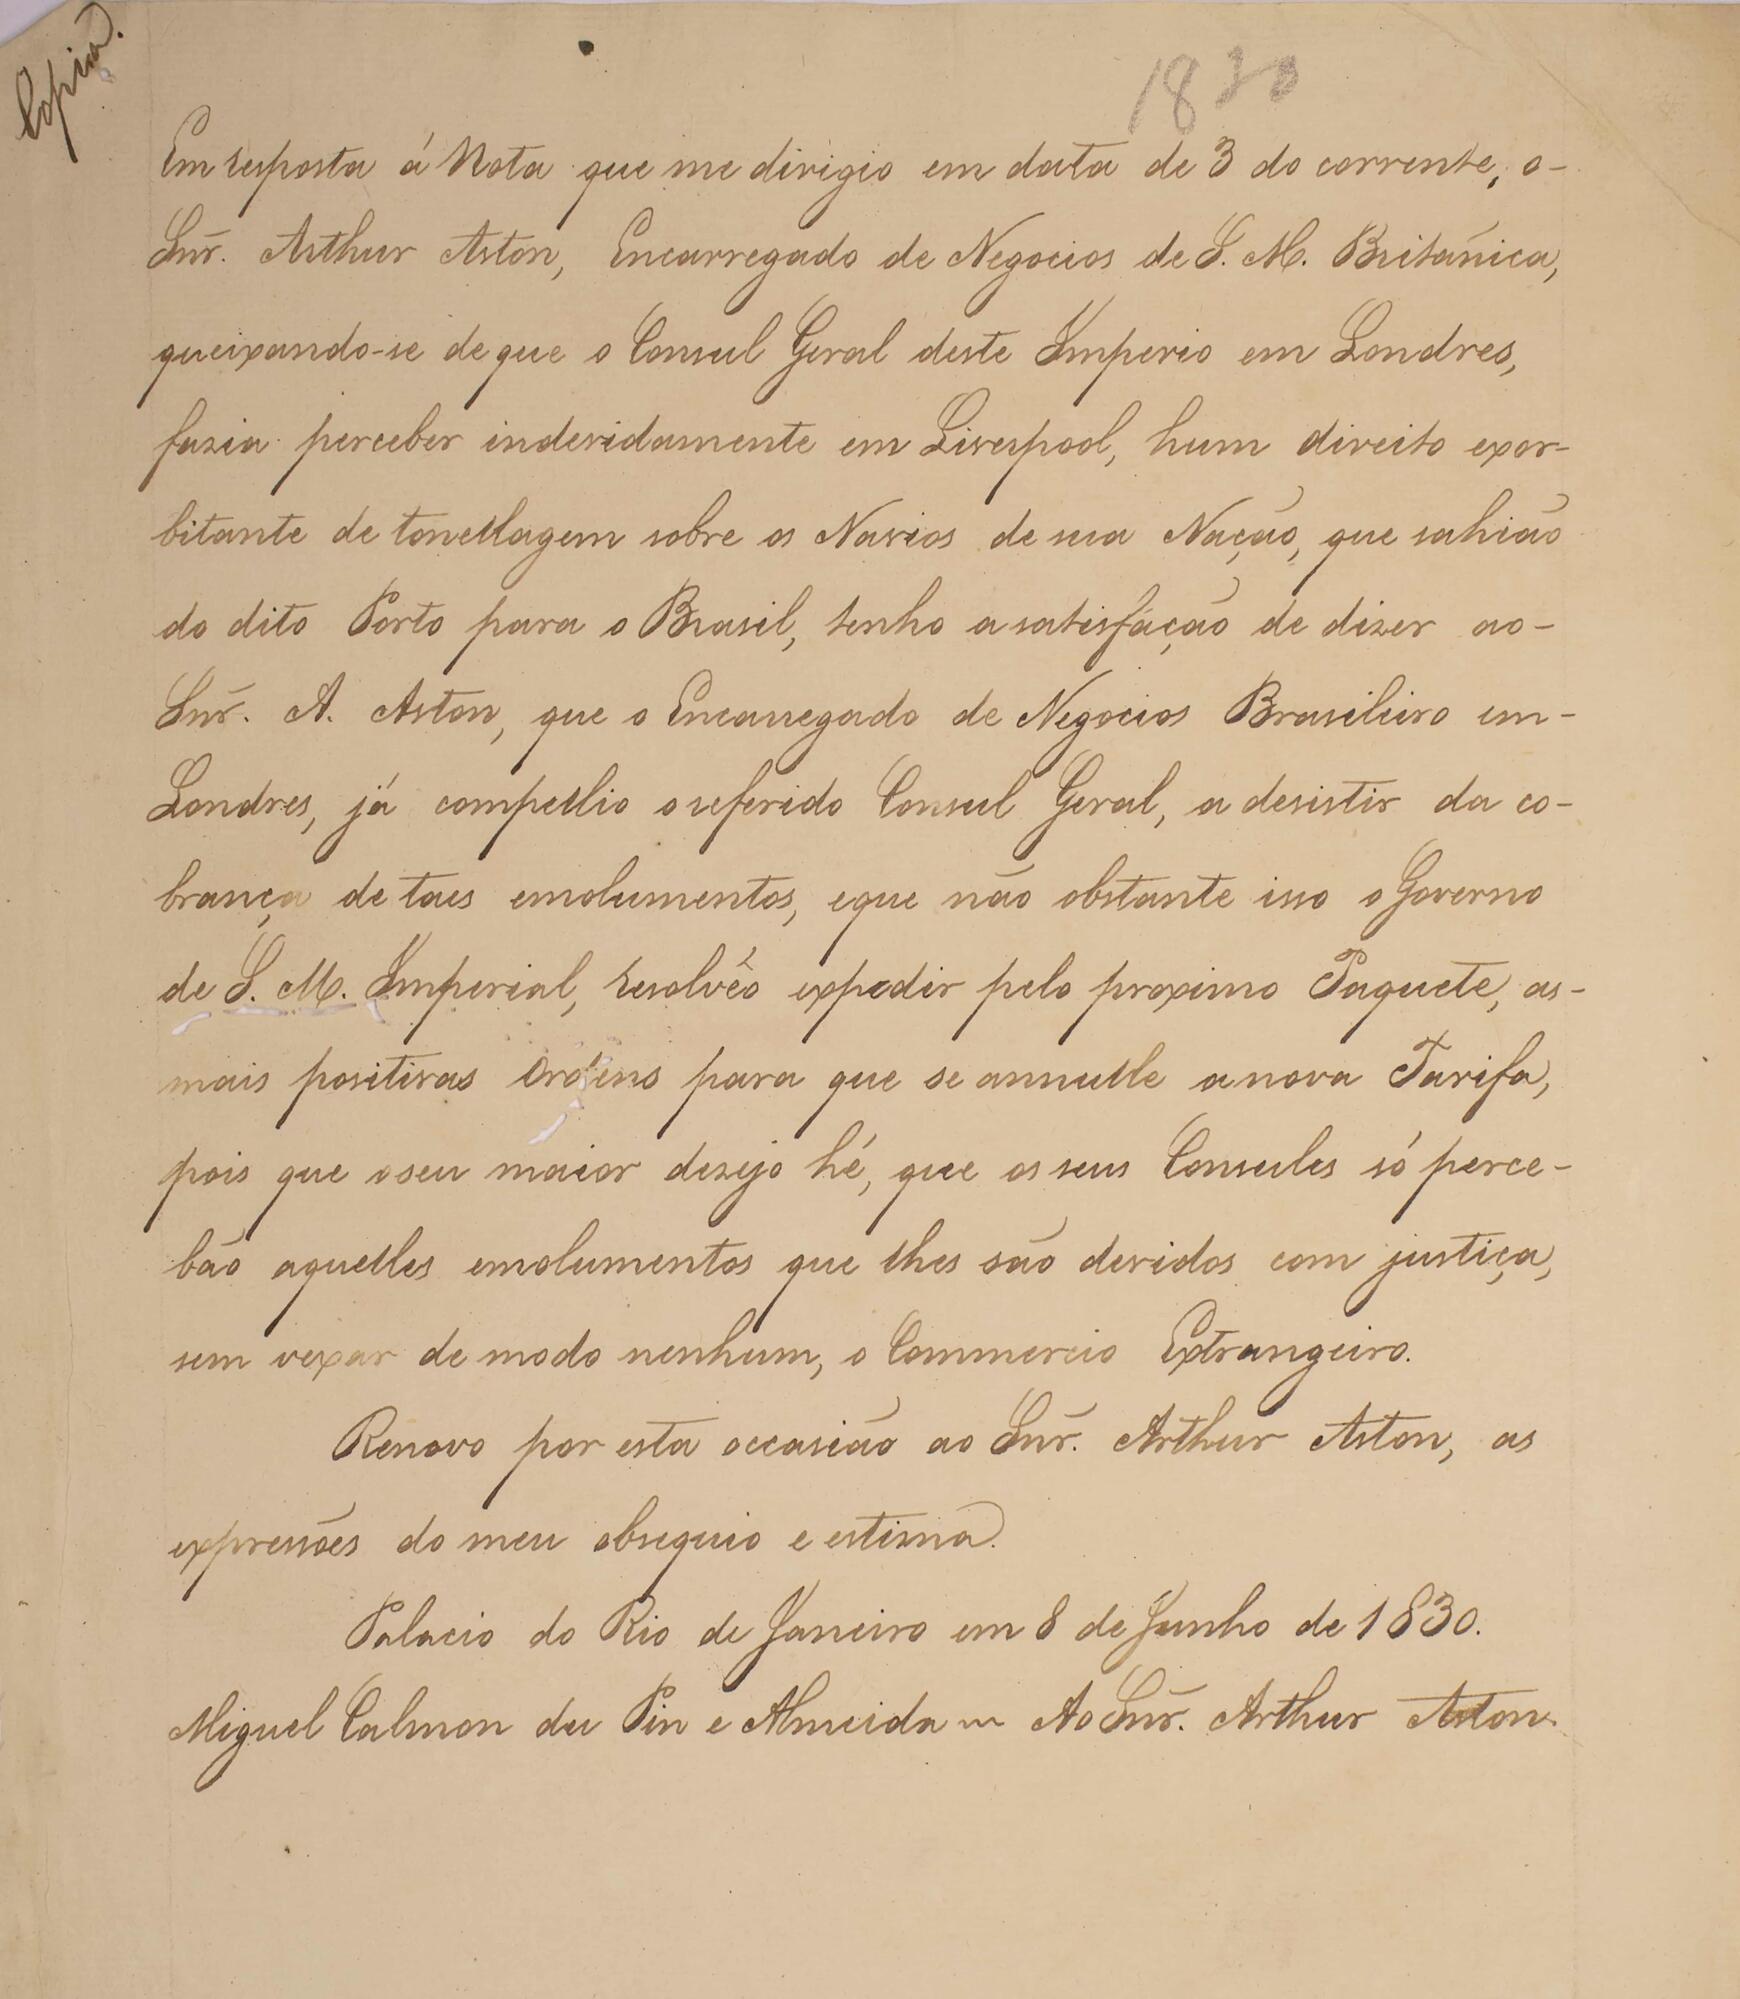 Copia.
1830
Em resposta á Nota que me dirigio em data de 3 do corrente, o-
Snr̃. Arthur Aston, Encarregado de Negocios de S. M. Britãnica,
queixando-se de que o Consul Geral deste Imperio em Londres,
fazia perceber indevidamente em Liverpool, hum direito exor-
bitante de tonellagem sobre os Navios de sua Nação, que sahião
do dito Porto para o Brasil, tenho a satisfáção de dizer ao-
Snr̃. A. Aston, que o Encarregado de Negocios Brasileiro em-
Londres, já compellio o referido Consul Geral, a desistir da co-
brança de taes emolumentos, e que não obstante isso o Governo
de S. M. Imperial, resolvêo expedir pelo proximo Paquete, as-
mais positivas Ordens para que se annulle a nova Tarifa,
pois que o seu maior desejo hé, que os seus Consules só perce-
bão aquelles emolumentos que lhes são devidos com justiça,
sem vexar de modo nenhum, o Commercio Extrangeiro.
Renovo por esta occasião ao Snr̃. Arthur Aston, as
expressões do meu obsequio e estima.
Palacio do Rio de Janeiro em 8 de Junho de 1830.
Miguel Calmon du Pin e Almeida ~ Ao Snr̃. Arthur Aston.